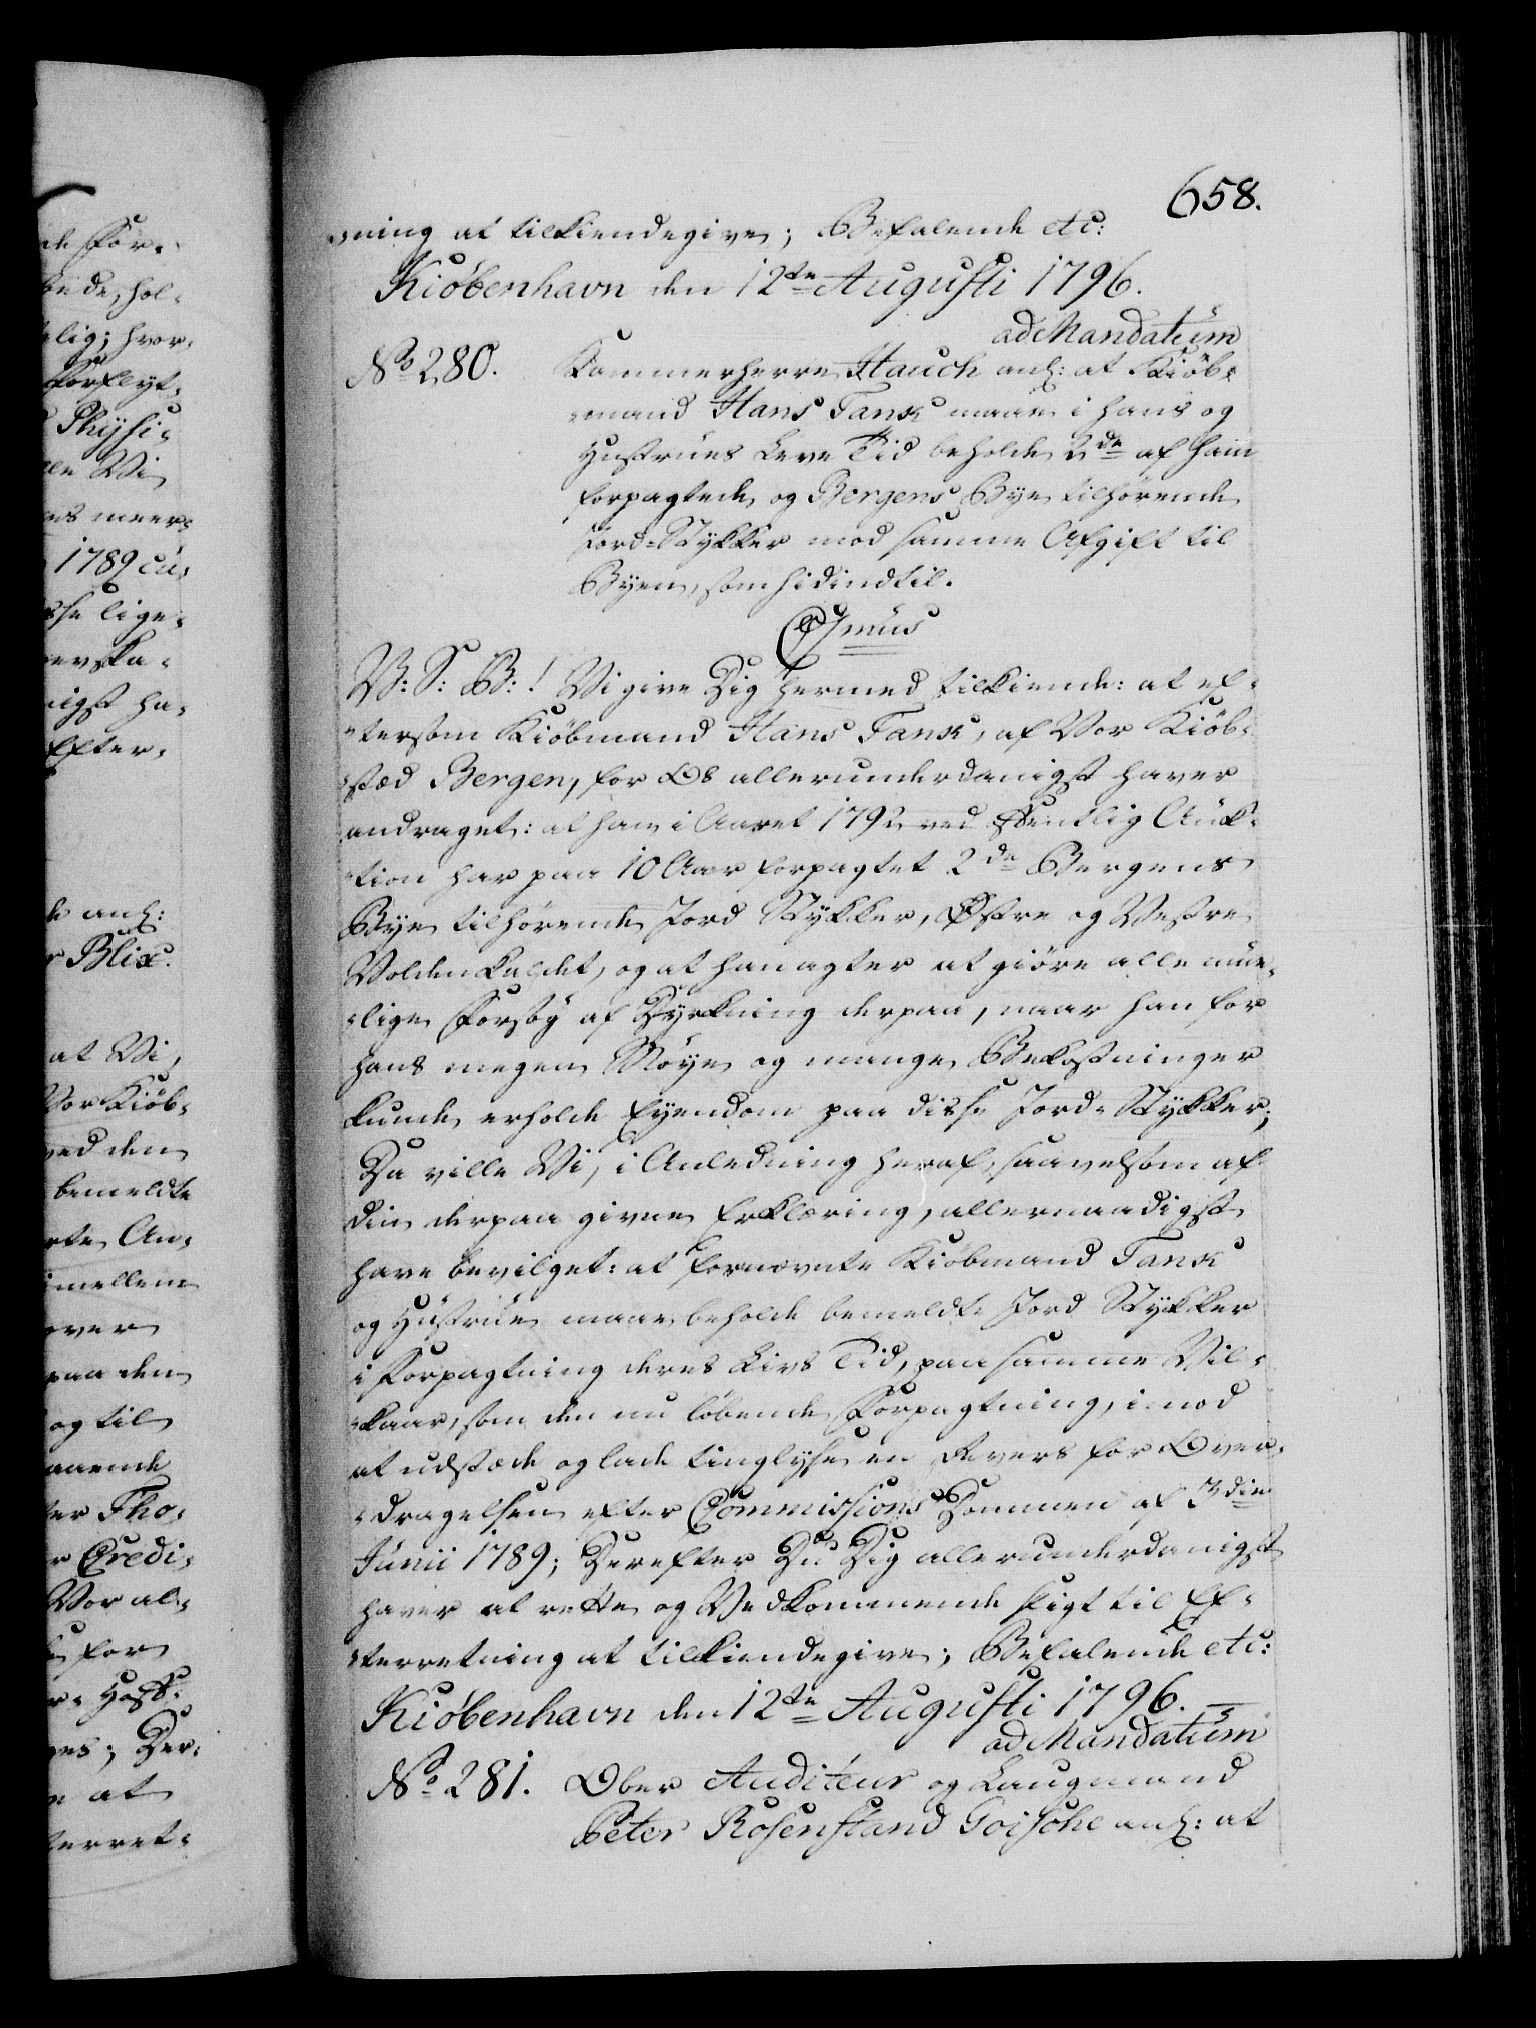 658.
ning at tilkiendegive; Befalende etc:
Kiöbenhavn den 12te Augusti 1796.
ad Mandatum
No 280. Kammerherre Hauch anh: at Kiöb-
-mand Hans Tank maae i hans og
Hustrues Leve Tid beholde 2de af ham
forpagtede og Bergens Bye tilhørende
Jord-Stykker mod samme Afgift til
Byen, som hidindtil.
C 7mus
V: S: B:! Vi give Dig hermed tilkiende: at ef-
-tersom Kiöbmand Hans Tank, af Vor Kiöb-
-stæd Bergen, for Os allerunderdanigst haver
andraget: at han i Aaret 1792 ved offentlig Auk-
-tion har paa 10 Aar forpagtet 2de Bergens
Bye tilhørende Jord Stykker, Østre og Vestre
Volden kaldet, og at han agter at giöre alle mue-
-lige Forsøg af Dyrkning derpaa, naar han for
hans megen Møye og mange Bekostninger
kunde erholde Eyendom paa disse Jord-Stykker;
Da ville Vi, i Anledning heraf, saavelsom af
din derpaa givne Erklæring, allernaadigst
have bevilget: at fornævnte Kiöbmand Tank
og Hustrue maae beholde bemeldte Jord Stykker
i Forpagtning deres Livs Tid, paa samme Vil-
-kaar, som den nu løbende Forpagtning, imod
at udstæde og lade tinglyse en Revers for Over-
-dragelsen efter Commissions Dommen af 3die
Junii 1789; Derefter Du Dig allerunderdanigst
haver at rette og Vedkommende sligt til Ef-
-terretning at tilkiendegive; Befalende etc:
Kiöbenhavn den 12te Augusti 1796.
ad Mandatum
No 281. Ober Auditeur og Laugmand
Peter Rosenstand Goische anh: at